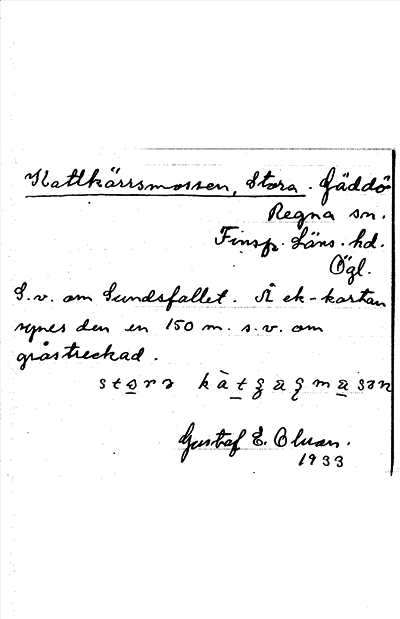 Kattkärrsmossen, Stora. Gäddö
Regna sn.
Finsp. Läns. hd.
Ögl.
S.v. om Sundsfallet. Å ek-kartan
synes den en 150 m. s.v. om
gråstreckad.
Gustaf E. Olsson.
1933